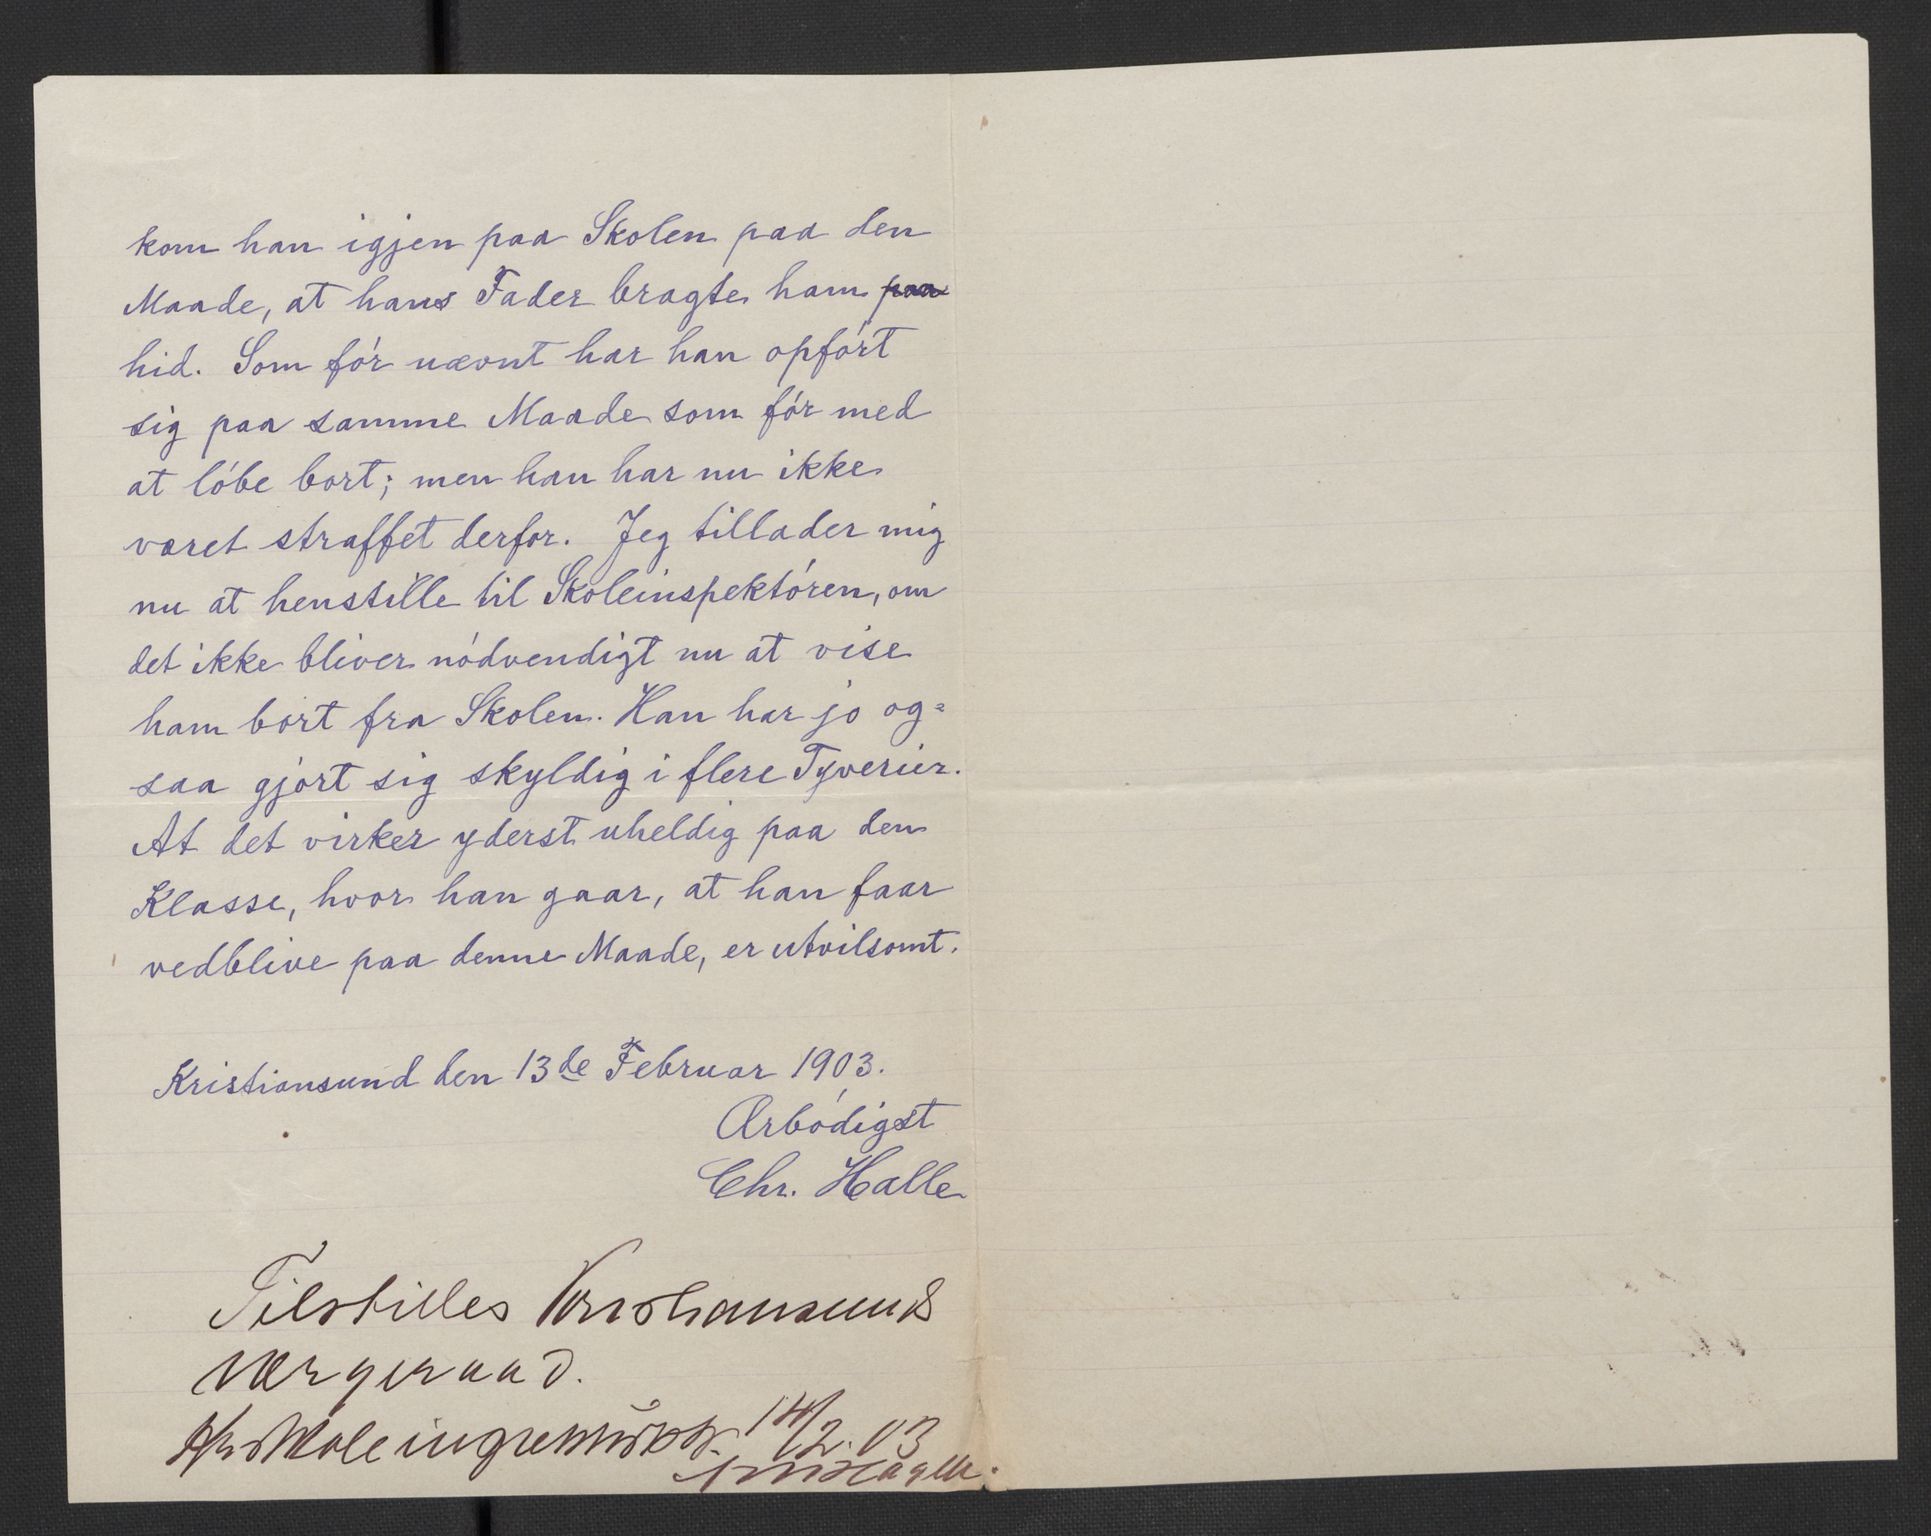 kom han igjen paa Skolen paa den
Maade, at hans Fader bragte ham paa
hid. Som fór nævnt har han opfórt
sig paa samme Maade som fór med
at lóbe bort; men han har nu ikke
været straffet derfor. Jeg tillader mig
nu at henstille til Skoleinspektóren, om
det ikke bliver nódvendigt nu at vise
ham bort fra Skolen. Han har jo og=
saa gjort sig skyldig i flere Tyverier.
At det virker yderst uheldig paa den
Klasse, hvor han gaar, at han faar
vedblive paa denne Maade, er utvilsomt.
Kristiansund den 13de Februar 1903.
Ærbódigst
Chr. Halle
Tilstilles Kristiansunds
Værgeraad.
14/2. 03